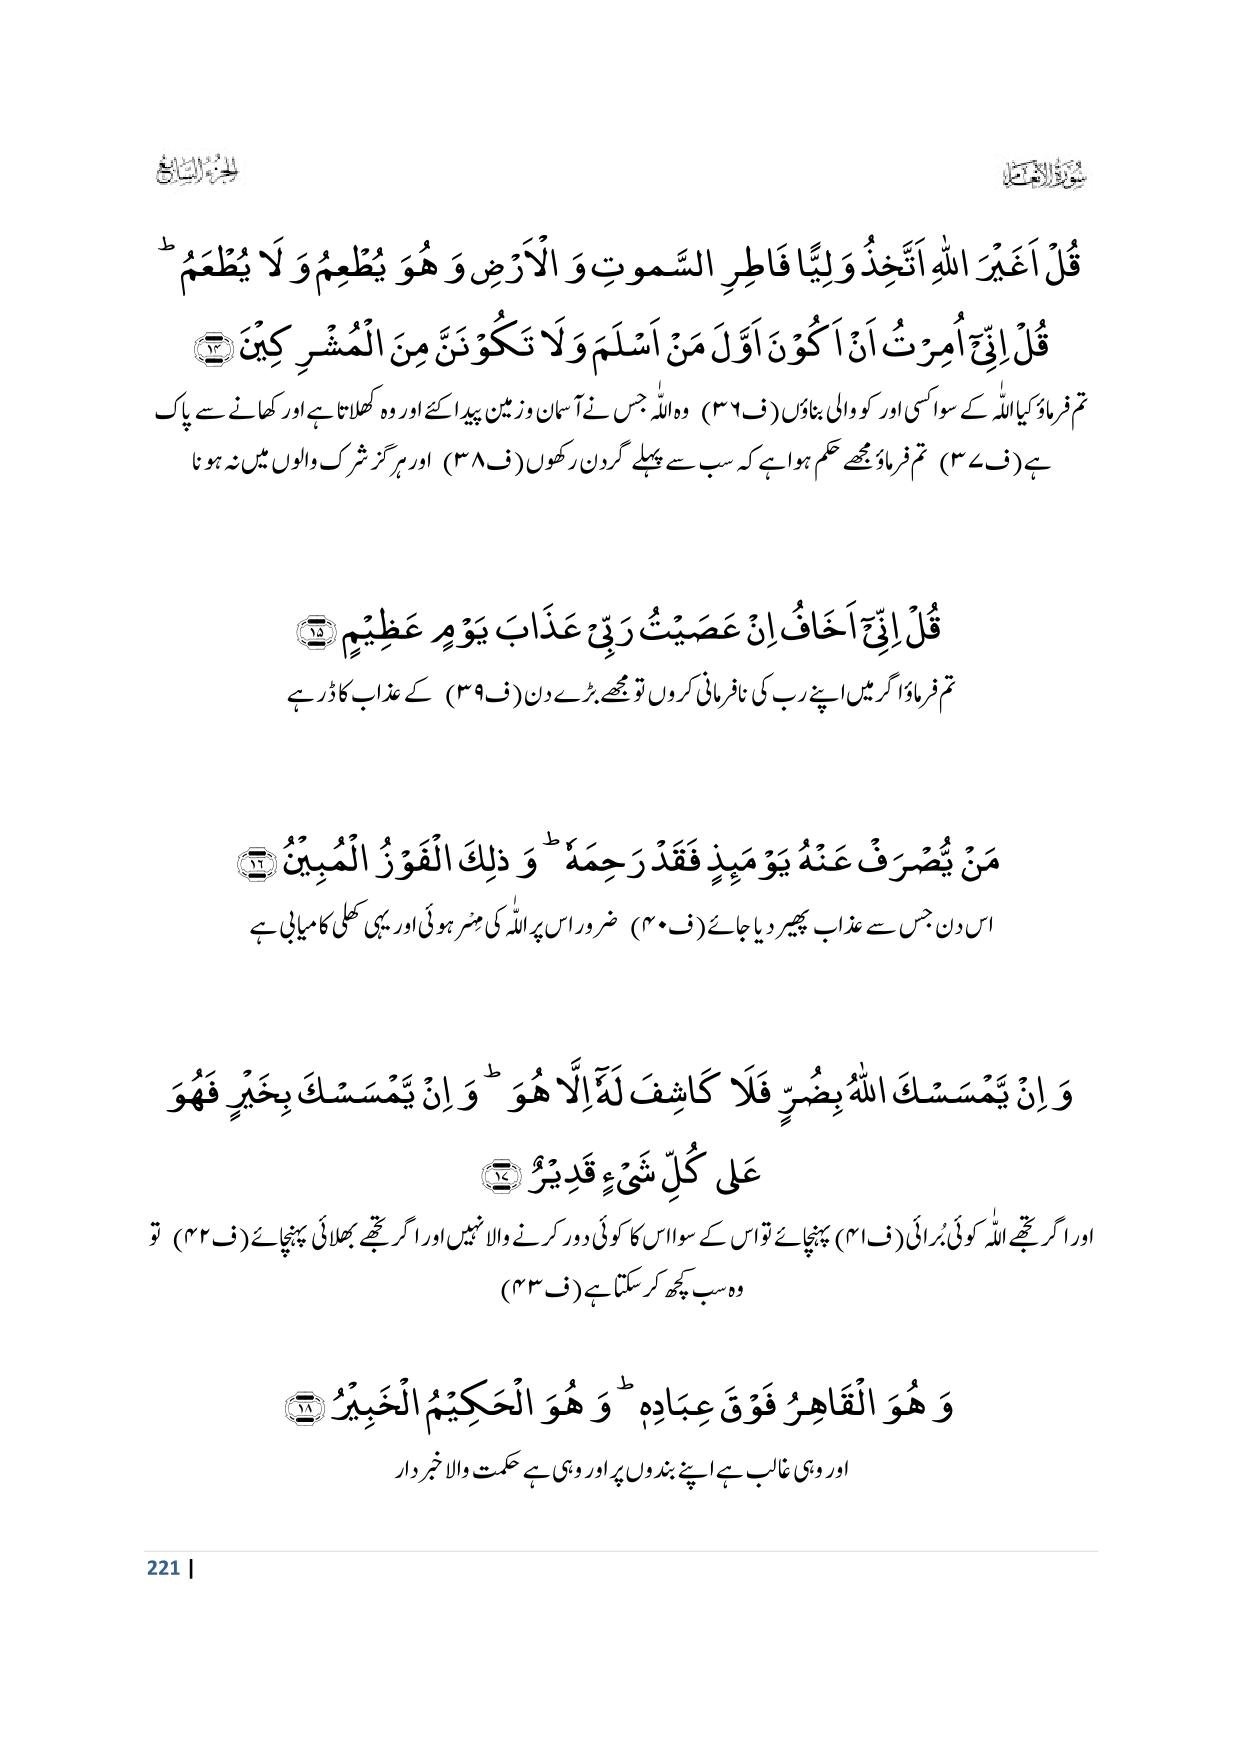 سُوْرَۃُ الْاَنْعَام
الجزءُ السَّابِع
قُلْ اَغَیْرَ اللّٰهِ اَتَّخِذُ وَلِیًّا فَاطِرِ السَّمٰوٰتِ وَ الْاَرْضِ وَ هُوَ یُطْعِمُ وَ لَا یُطْعَمُ ؕ
قُلْ اِنِّیْۤ اُمِرْتُ اَنْ اَكُوْنَ اَوَّلَ مَنْ اَسْلَمَ وَ لَا تَكُوْنَنَّ مِنَ الْمُشْرِكِیْنَ ﴿۱۴﴾
تم فرماؤ کیا اللّٰہ کے سوا کسی اور کو والی بناؤں (ف۳۶) وہ اللّٰہ جس نے آسمان و زمین پیدا کئے اور وہ کھلاتا ہے اور کھانے سے پاک
ہے (ف۳۷) تم فرماؤ مجھے حکم ہوا ہے کہ سب سے پہلے گردن رکھوں (ف۳۸) اور ہرگز شرک والوں میں نہ ہونا
قُلْ اِنِّیْۤ اَخَافُ اِنْ عَصَیْتُ رَبِّیْ عَذَابَ یَوْمٍ عَظِیْمٍ ﴿۱۵﴾
تم فرماؤ اگر میں اپنے رب کی نافرمانی کروں تو مجھے بڑے دن (ف۳۹) کے عذاب کا ڈر ہے
مَنْ یُّصْرَفْ عَنْهُ یَوْمَىِٕذٍ فَقَدْ رَحِمَهٗ ؕ وَ ذٰلِكَ الْفَوْزُ الْمُبِیْنُ ﴿۱۶﴾
اس دن جس سے عذاب پھیر دیا جائے (ف۴۰) ضرور اس پر اللّٰہ کی مِہْر ہوئی اور یہی کھلی کامیابی ہے
وَ اِنْ یَّمْسَسْكَ اللّٰهُ بِضُرٍّ فَلَا كَاشِفَ لَهٗۤ اِلَّا هُوَ ؕ وَ اِنْ یَّمْسَسْكَ بِخَیْرٍ فَهُوَ
عَلٰى كُلِّ شَیْءٍ قَدِیْرٌ ﴿۱۷﴾
اور اگر تجھے اللّٰہ کوئی بُرائی (ف۴۱) پہنچائے تو اس کے سوا اس کا کوئی دور کرنے والا نہیں اور اگر تجھے بھلائی پہنچائے (ف۴۲) تو
وہ سب کچھ کر سکتا ہے (ف۴۳)
وَ هُوَ الْقَاهِرُ فَوْقَ عِبَادِهٖ ؕ وَ هُوَ الْحَكِیْمُ الْخَبِیْرُ ﴿۱۸﴾
اور وہی غالب ہے اپنے بندوں پر اور وہی ہے حکمت والا خبردار
221 |